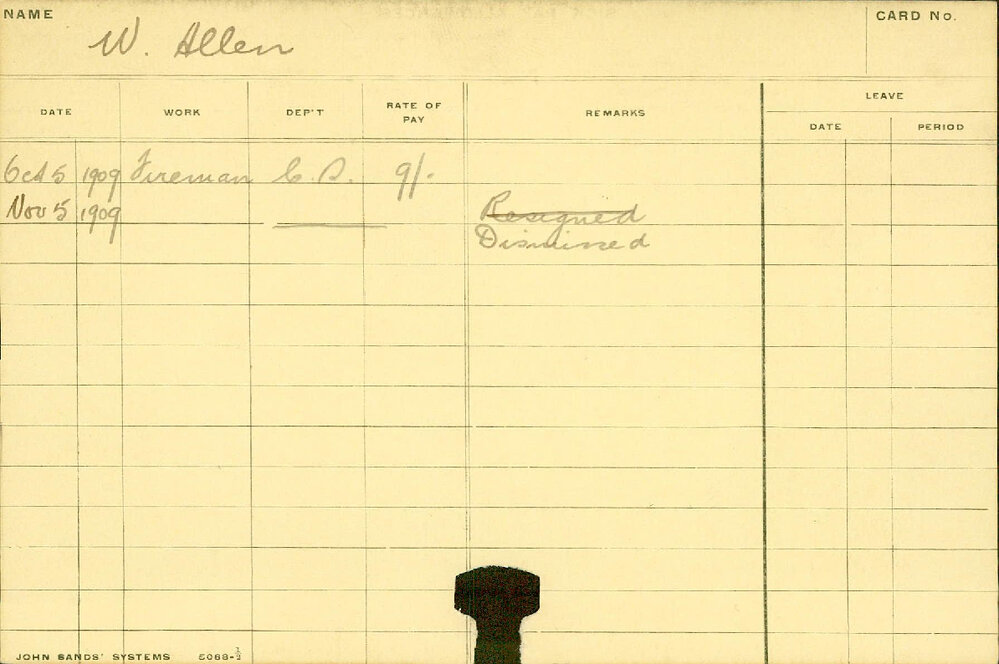 NAME
W. Allen
CARD No.
DATE WORK DEP'T RATE OF PAY REMARKS LEAVE
DATE PERIOD
Oct 5 1909 Fireman C.D. 9/-
Nov 5 1909 Resigned
Dismissed
JOHN SANDS' SYSTEMS 5088-½